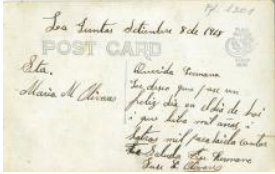 La Juntas Setiembre 8 de 1918
POST CARD
Srta.
Maria M Olivas
Querida hermana
Les deseo que pase un
feliz dia en el dia de hoi
i que biba mil años i
otros mil para
Saluda Su Hermano
Jose L Olivas